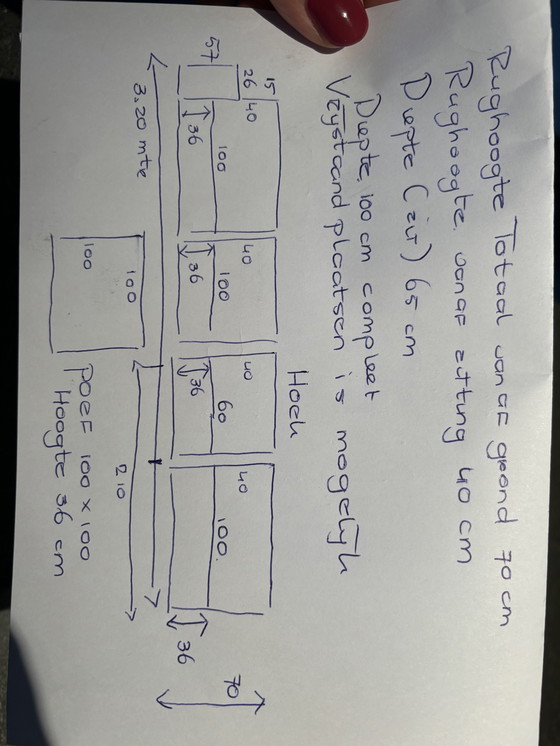 Rughoogte Totaal vanaf grond 70 cm
Rughoogte vanaf zitting 40 cm
Diepte (zit) 65 cm
Diepte 100 cm compleet
Vrijstaand plaatsen is mogelijk
Hoek
15
26
57
40
100
36
40
100
36
40
60
36
40
100.
36
70
3.20 mte
210
100
100
POEF 100 x 100
Hoogte 36 cm